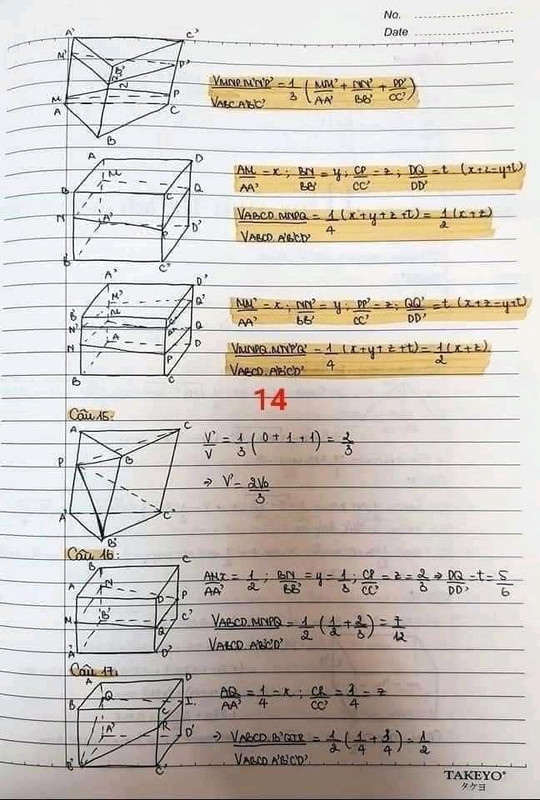 No.
Date
A' C'
M' B' P'
N'
N
M P
A C
B
VMNP.M'N'P' / VABC.A'B'C' = 1/3 (MM'/AA' + NN'/BB' + PP'/CC')
A D
M
B C Q
N A' P D'
B' C'
AM/AA' = x ; BN/BB' = y ; CP/CC' = z ; DQ/DD' = t (x+z=y+t)
VABCD.MNPQ / VABCD.A'B'C'D' = 1/4 (x+y+z+t) = 1/2 (x+z)
A' D'
M' Q'
B' M
N' Q
N A P D
B C
MM'/AA' = x ; NN'/BB' = y ; PP'/CC' = z ; QQ'/DD' = t (x+z=y+t)
VMNPQ.M'N'P'Q' / VABCD.A'B'C'D' = 1/4 (x+y+z+t) = 1/2 (x+z)
14
Câu 15:
A C
P B
A' C'
B'
V'/V = 1/3 (0+1+1) = 2/3
⇒ V' = 2V0/3
Câu 16:
B C
A N D P
M B' Q C'
A' D'
AM/AA' = x = 1/2 ; BN/BB' = y = 1/3 ; CP/CC' = z = 2/3 ⇒ DQ/DD' = t = 5/6
VABCD.MNPQ / VABCD.A'B'C'D' = 1/2 (1/2 + 2/3) = 7/12
Câu 17:
A D
Q
B C I
A' R D'
B' C'
AQ/AA' = 1/4 = x ; CR/CC' = 3/4 = z
⇒ VABCD.B'QIR / VABCD.A'B'C'D' = 1/2 (1/4 + 3/4) = 1/2
TAKEYO®
タケヨ